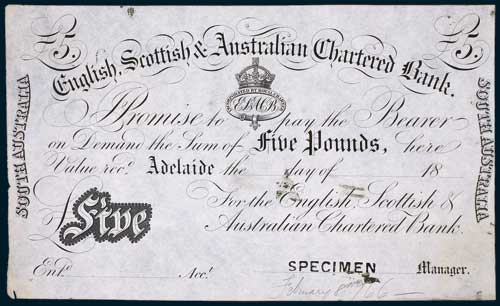 £5. £5.
English, Scottish & Australian Chartered Bank.
INCORPORATED BY ROYAL CHARTER
I Promise to pay the Bearer
on Demand the Sum of Five Pounds, here
Value recd. Adelaide the day of 18
For the English, Scottish &
£ Five Australian Chartered Bank.
Entd. Acct. SPECIMEN Manager.
February
SOUTH AUSTRALIA
SOUTH AUSTRALIA